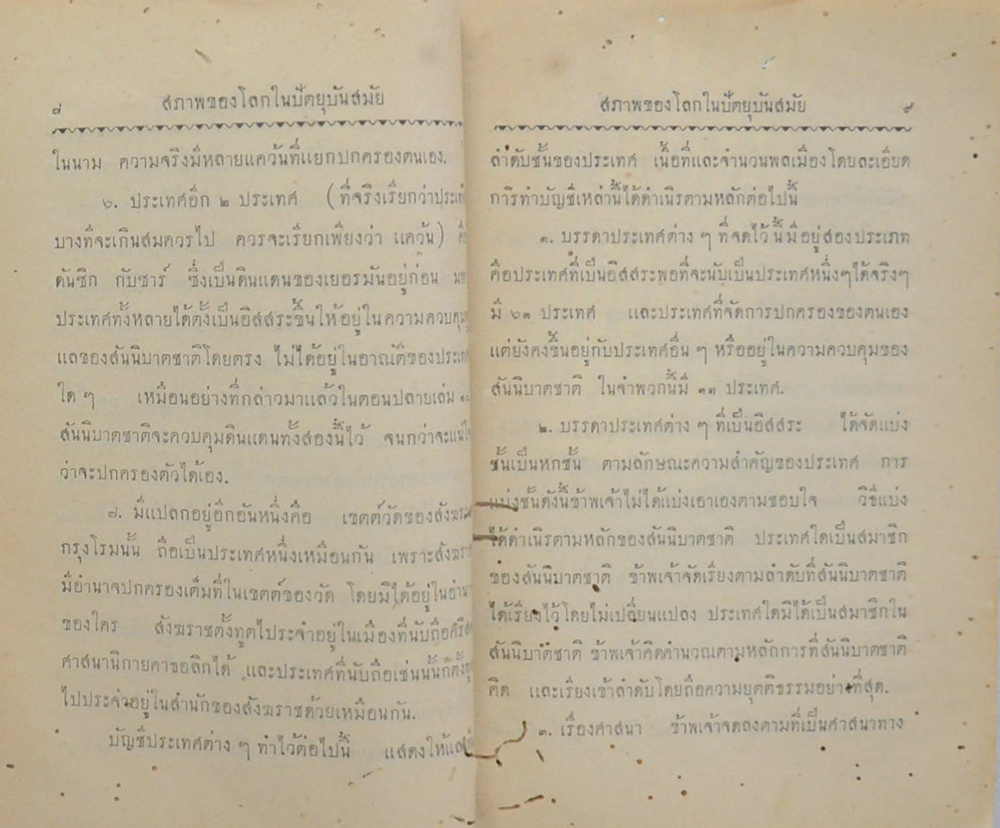 ๘
สภาพของโลกในปัตยุบันสมัย
ในนาม ความจริงมีหลายแคว้นที่แยกปกครองตนเอง.
๖. ประเทศอีก ๒ ประเทศ (ที่จริงเรียกว่าประเท
บางทีจะเกินสมควรไป ควรจะเรียกเพียงว่า แคว้น)
ดันซิก กับซาร์ ซึ่งเป็นดินแดนของเยอรมันอยู่ก่อน
ประเทศทั้งหลายได้ตั้งเป็นอิสสระขึ้นให้อยู่ในความควบคุม
แลของสันนิบาตชาติโดยตรง ไม่ได้อยู่ในอาณัติของประเท
ใด ๆ เหมือนอย่างที่กล่าวมาแล้วในตอนปลายเล่ม
สันนิบาตชาติจะควบคุมดินแดนทั้งสองนี้ไว้ จนกว่าจะแน่ใจ
ว่าจะปกครองตัวได้เอง.
๗. มีแปลกอยู่อีกอันหนึ่งคือ เขตต์วัดของสังฆรา
กรุงโรมนั้น ถือเป็นประเทศหนึ่งเหมือนกัน เพราะสังฆรา
มีอำนาจปกครองเต็มที่ในเขตต์ของวัด โดยมิได้อยู่ในอำนา
ของใคร สังฆราชตั้งทูตไปประจำอยู่ในเมืองที่นับถือคริส
ศาสนานิกายคาธอลิกได้ และประเทศที่นับถือเช่นนั้นก็ตั้งทู
ไปประจำอยู่ในสำนักของสังฆราชด้วยเหมือนกัน.
บัญชีประเทศต่าง ๆ ทำไว้ต่อไปนี้ แสดงให้แล
สภาพของโลกในปัตยุบันสมัย
๙
ลำดับชั้นของประเทศ เนื้อที่และจำนวนพลเมืองโดยละเอียด
การทำบัญชีเหล่านี้ได้ดำเนิรตามหลักต่อไปนี้
๑. บรรดาประเทศต่าง ๆ ที่จดไว้นี้มีอยู่สองประเภท
คือประเทศที่เป็นอิสสระพอที่จะนับเป็นประเทศหนึ่งๆได้จริงๆ
มี ๖๓ ประเทศ และประเทศที่จัดการปกครองของตนเอง
แต่ยังคงขึ้นอยู่กับประเทศอื่น ๆ หรืออยู่ในความควบคุมของ
สันนิบาตชาติ ในจำพวกนี้มี ๑๓ ประเทศ.
๒. บรรดาประเทศต่าง ๆ ที่เป็นอิสสระ ได้จัดแบ่ง
ชั้นเป็นหกชั้น ตามลักษณะความสำคัญของประเทศ การ
แบ่งชั้นดังนี้ข้าพเจ้าไม่ได้แบ่งเอาเองตามชอบใจ วิธีแบ่ง
ได้ดำเนิรตามหลักของสันนิบาตชาติ ประเทศใดเป็นสมาชิก
ของสันนิบาตชาติ ข้าพเจ้าจัดเรียงตามลำดับที่สันนิบาตชาติ
ได้เรียงไว้โดยไม่เปลี่ยนแปลง ประเทศใดมิได้เป็นสมาชิกใน
สันนิบาตชาติ ข้าพเจ้าคิดคำนวณตามหลักการที่สันนิบาตชาติ
คิด และเรียงเข้าลำดับโดยถือความยุตติธรรมอย่างที่สุด.
๓. เรื่องศาสนา ข้าพเจ้าจดลงตามที่เป็นศาสนาทาง